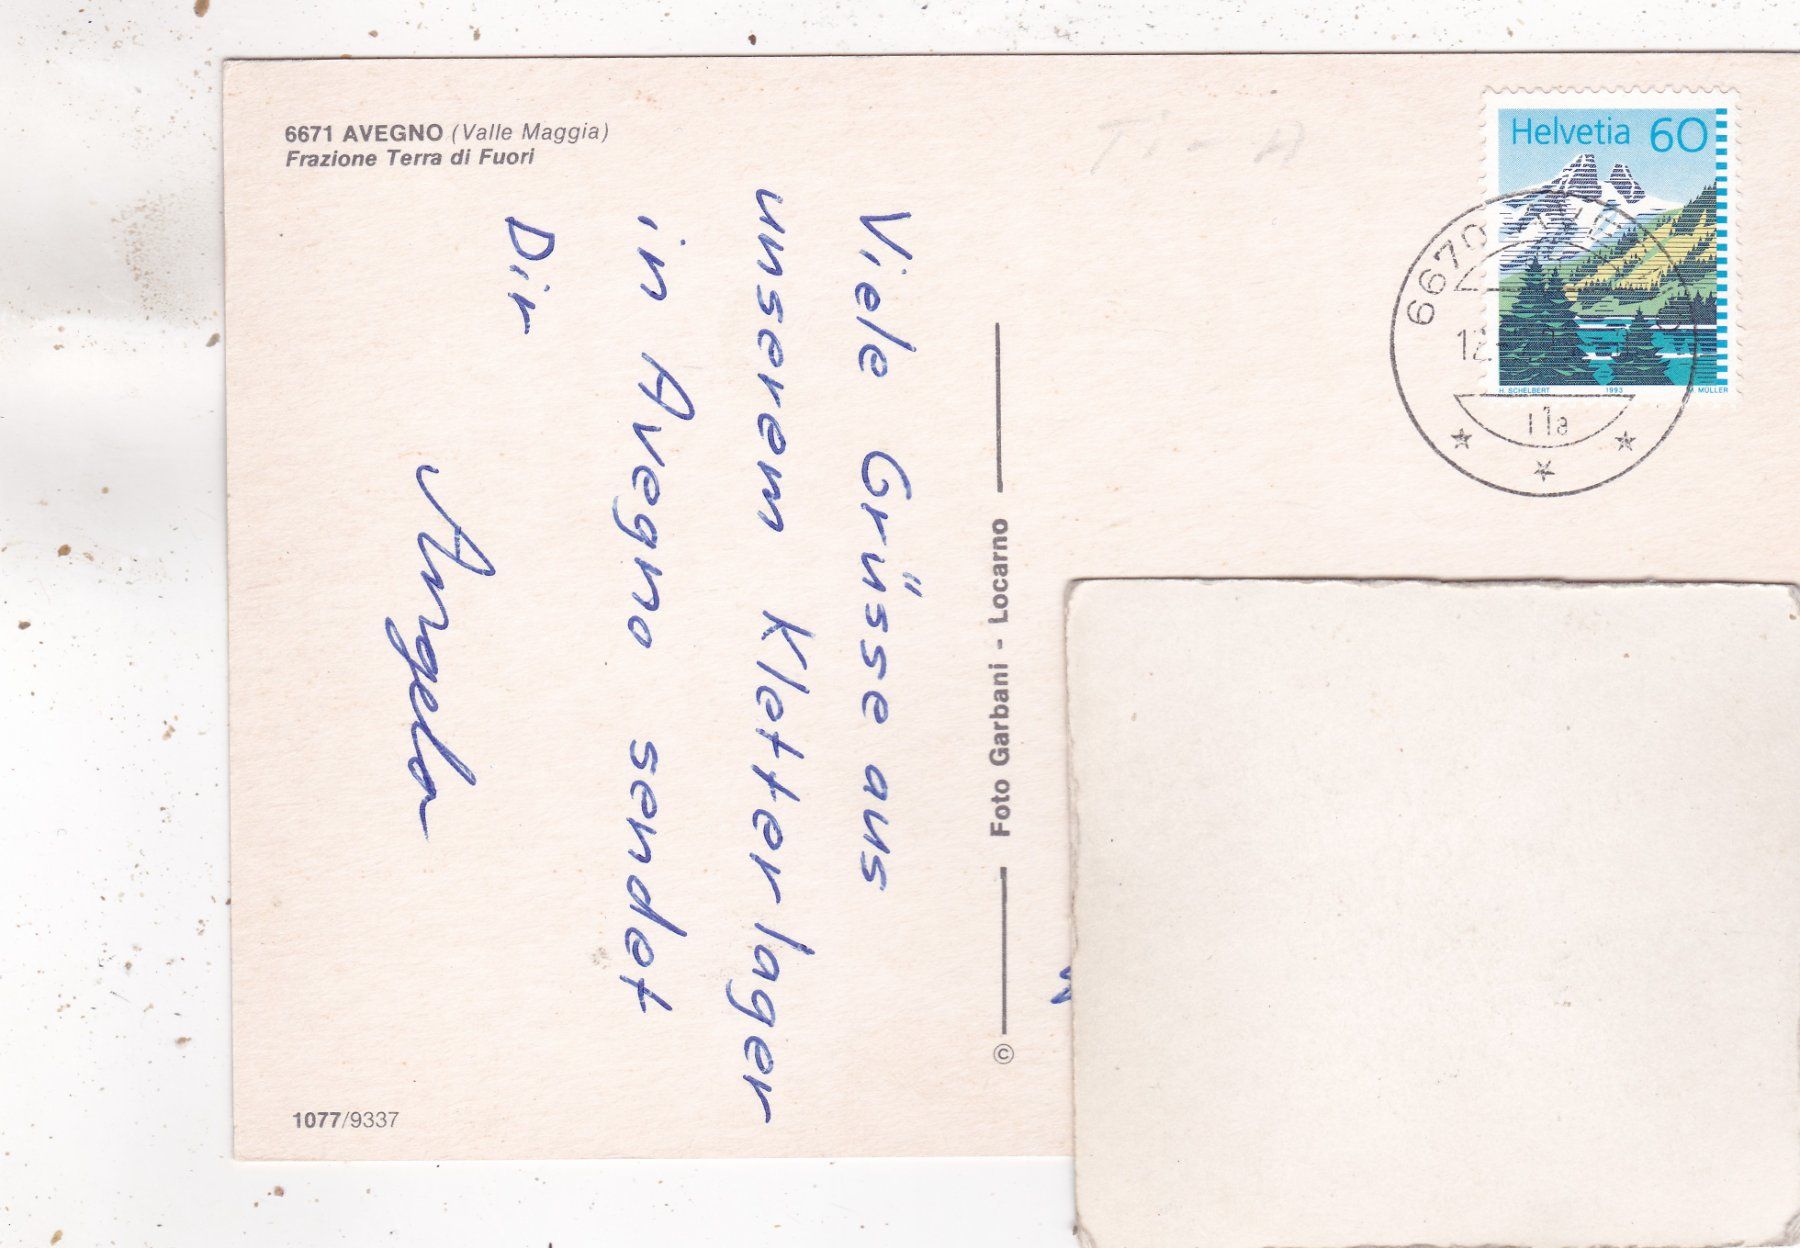 6671 AVEGNO (Valle Maggia)
Frazione Terra di Fuori
Viele Grüsse aus
unserem Kletterlager
in Avegno sendet
Dir
Angela
Foto Garbani - Locarno
©
1077/9337
Ti - A
Helvetia 60
H. SCHELBERT 1993 M. MÜLLER
6670
12
11a